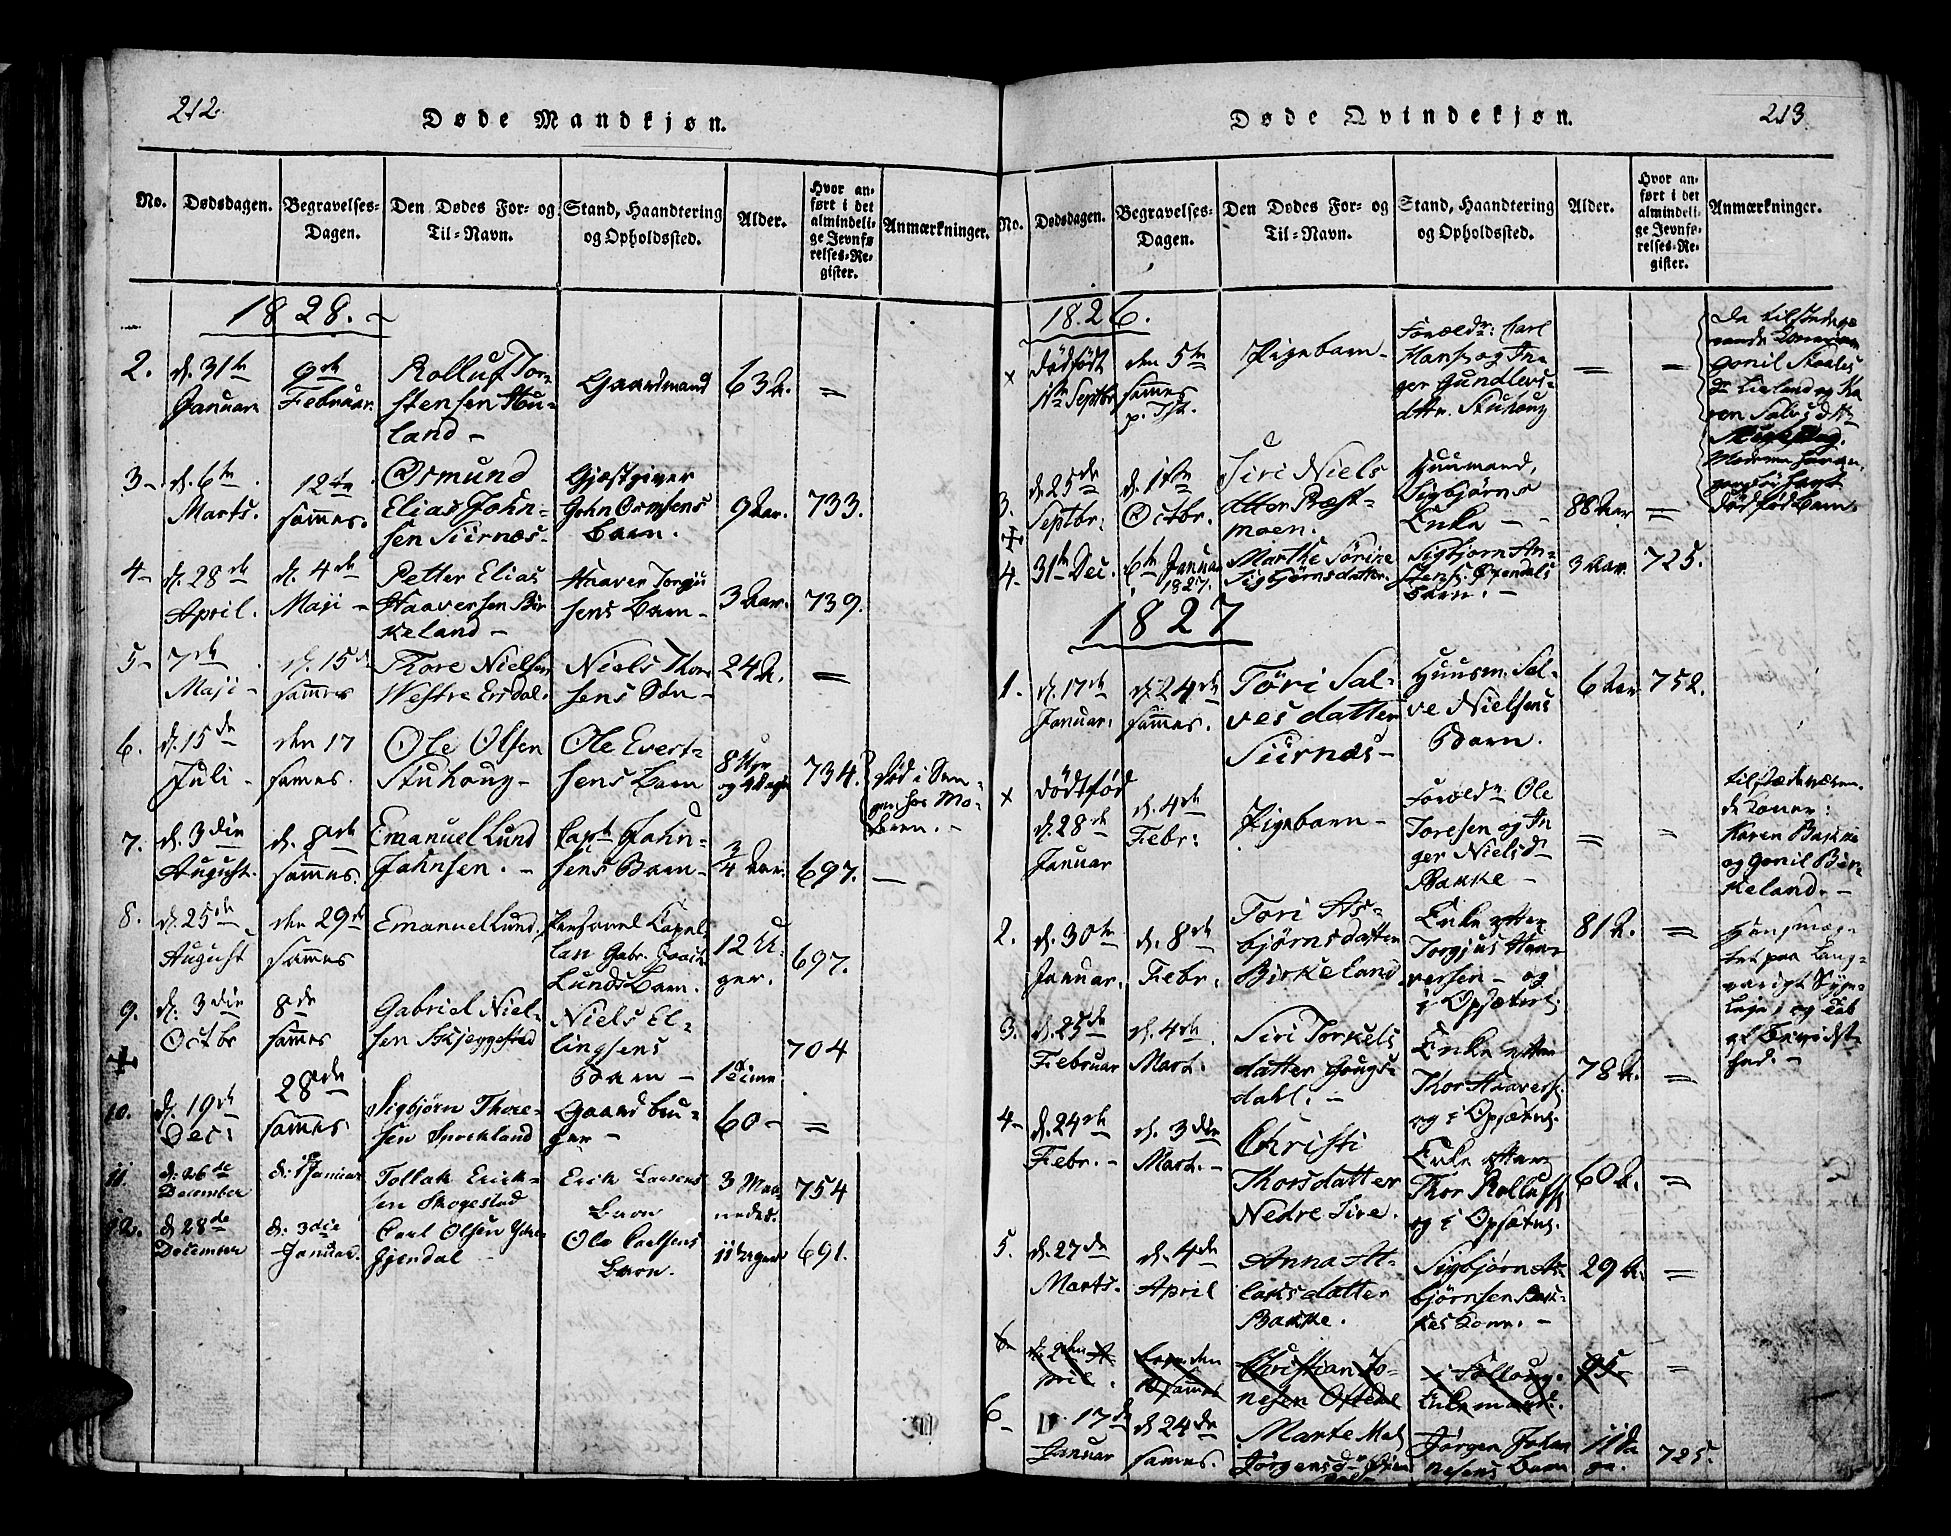 212.
Døde Mandkjøn.
No.
Dødsdagen.
Begravelses-
Dagen.
Den Dødes For- og
Til-Navn.
Stand, Haandtering
og Opholdssted.
Alder.
Hvor an-
ført i det
almindeli-
ge Jevnfø
relses-Re-
gister.
Anmærkninger.
1828. -
2. d. 31te Januar 9de Februar. Rolluf Tor-
stensen Hu-
land - Gaardmand 63 A. =
3- d. 6te Marts. 12te sammes. Osmund
Elias John-
sen Siirnæs. Gjæstgiver
John Osmsens
Barn. 9 Aar. 733.
4- d. 28de April. d. 4de Maji - Petter Elias
Haaversen Bir
keland - Haaver Torgju
sens Barn - 3 Aar. 739.
5- 7de Maji - d. 15de sammes Thore Nielsen
Westre Ersdal. Niels Thor
sens Søn - 24 A. =
6. d. 15de Juli - den 17 sammes. Ole Olsen
Stuhoug - Ole Evert-
sens Barn 8 Uger
og 4 Dage 734. død i Sen-
gen hos Mo-
deren. -
7. d. 3die August. d. 8de sammes. Emanuel Lund
Jahnsen. - Capt. Jahn-
sens Barn - 3/4 Aar. 697. -
8. d. 25de August den 29de sammes Emanuel Lund. Personel Capel
lan Gabr.
Lunds Barn. 12 U-
ger. 697.
9. d. 3die Octbr 8de sammes Gabriel Niel-
sen Skjeggestad Niels El-
lingsens
Barn - 1 Time 704
10. d. 19de Dec: 28de sammes. Sigbjørn Thore-
sen Sprekland Gaardbru-
ger - 60 - =
11. d. 26de December d: 1 Januar Tollak Erick-
sen Skogestad Erick Larsens
Barn 3 Maa-
neder. 754
12. d. 28de December d: 3die Januar. Carl Olsen
Gjendal - Ole Carlsens
Barn. 11 Uger 691.
Døde Qvindekjøn.
213.
No.
Dødsdagen.
Begravelses-
Dagen.
Den Dødes For- og
Til-Navn.
Stand, Haandtering
og Opholdssted.
Alder.
Hvor an-
ført i det
almindeli-
ge Jevnfø-
relses-Re-
gister.
Anmærkninger.
1826.
x Dødfødt
1ste Septbr den 5te
sammes Pigebarn - Foræld: Carl
Hans. og In-
ger Gundlevs-
dttr. Stuhoug = = De tilstedevæ
rende
Gonil
Dødfød Barn.
3. d. 25de Septbr. d. 1ste Octbr. Siri Niels
datter Præst-
moen. Huusmand,
Sigbjørns
Enke - 88 Aar =
4- 31te Dec. 6te Januar
1827. Marthe Sørine
Sigbjørnsdatter. Sigbjørn An-
Barn. - 3 Aar. 725.
1827
1. d. 17de Januar. d. 24de sammes. Töri Sal-
vesdatter
Siirnæs - Huusm. Sal-
ve Nielsens
Barn. 6 Aar 752.
x Dødfød
d. 28de Januar d. 4de Febr: Pigebarn - Foræld. Ole
Toresen og In
ger Nielsd.
Bakke - = = tilstedeværen-
de Koner:
Karen Bakke
og Gonil Bir-
keland. -
2. d. 30te Januar. d. 8de Febr. Tori As-
bjørnsdatter
Birkeland Enke efter
Torgjus Haa-
versen - og
i Opsæters. 81 A. =
3. d. 25de Februar d. 4de Mart. Siri Torkels
datter Gougs-
dahl. - Enke efter
Thor Haavers.
og i Opsæters. 78 A. =
4- d. 24de Febr. - d. 3die Mart. - Christi
Thorsdatter
Nedre Sire. Enke efter
Thor Rollufs.
og i Opsætns. 60 A. =
5. d. 27de Marts. d. 4de April Anna At-
laksdatter
Bakke. Sigbjørn As-
bjørnsen Bak-
kes Kone. - 29 A. =
6- d. 2den A-
pril. den
sammes Christian To-
nesen Oftedal i Follaug.
Enkemand. 95 =
6- D. 17de Januar d. 24de sammes. Marte Mel
Jørgensd. Jørgen Johan
nesens Barn 11 Da
ge. 725.